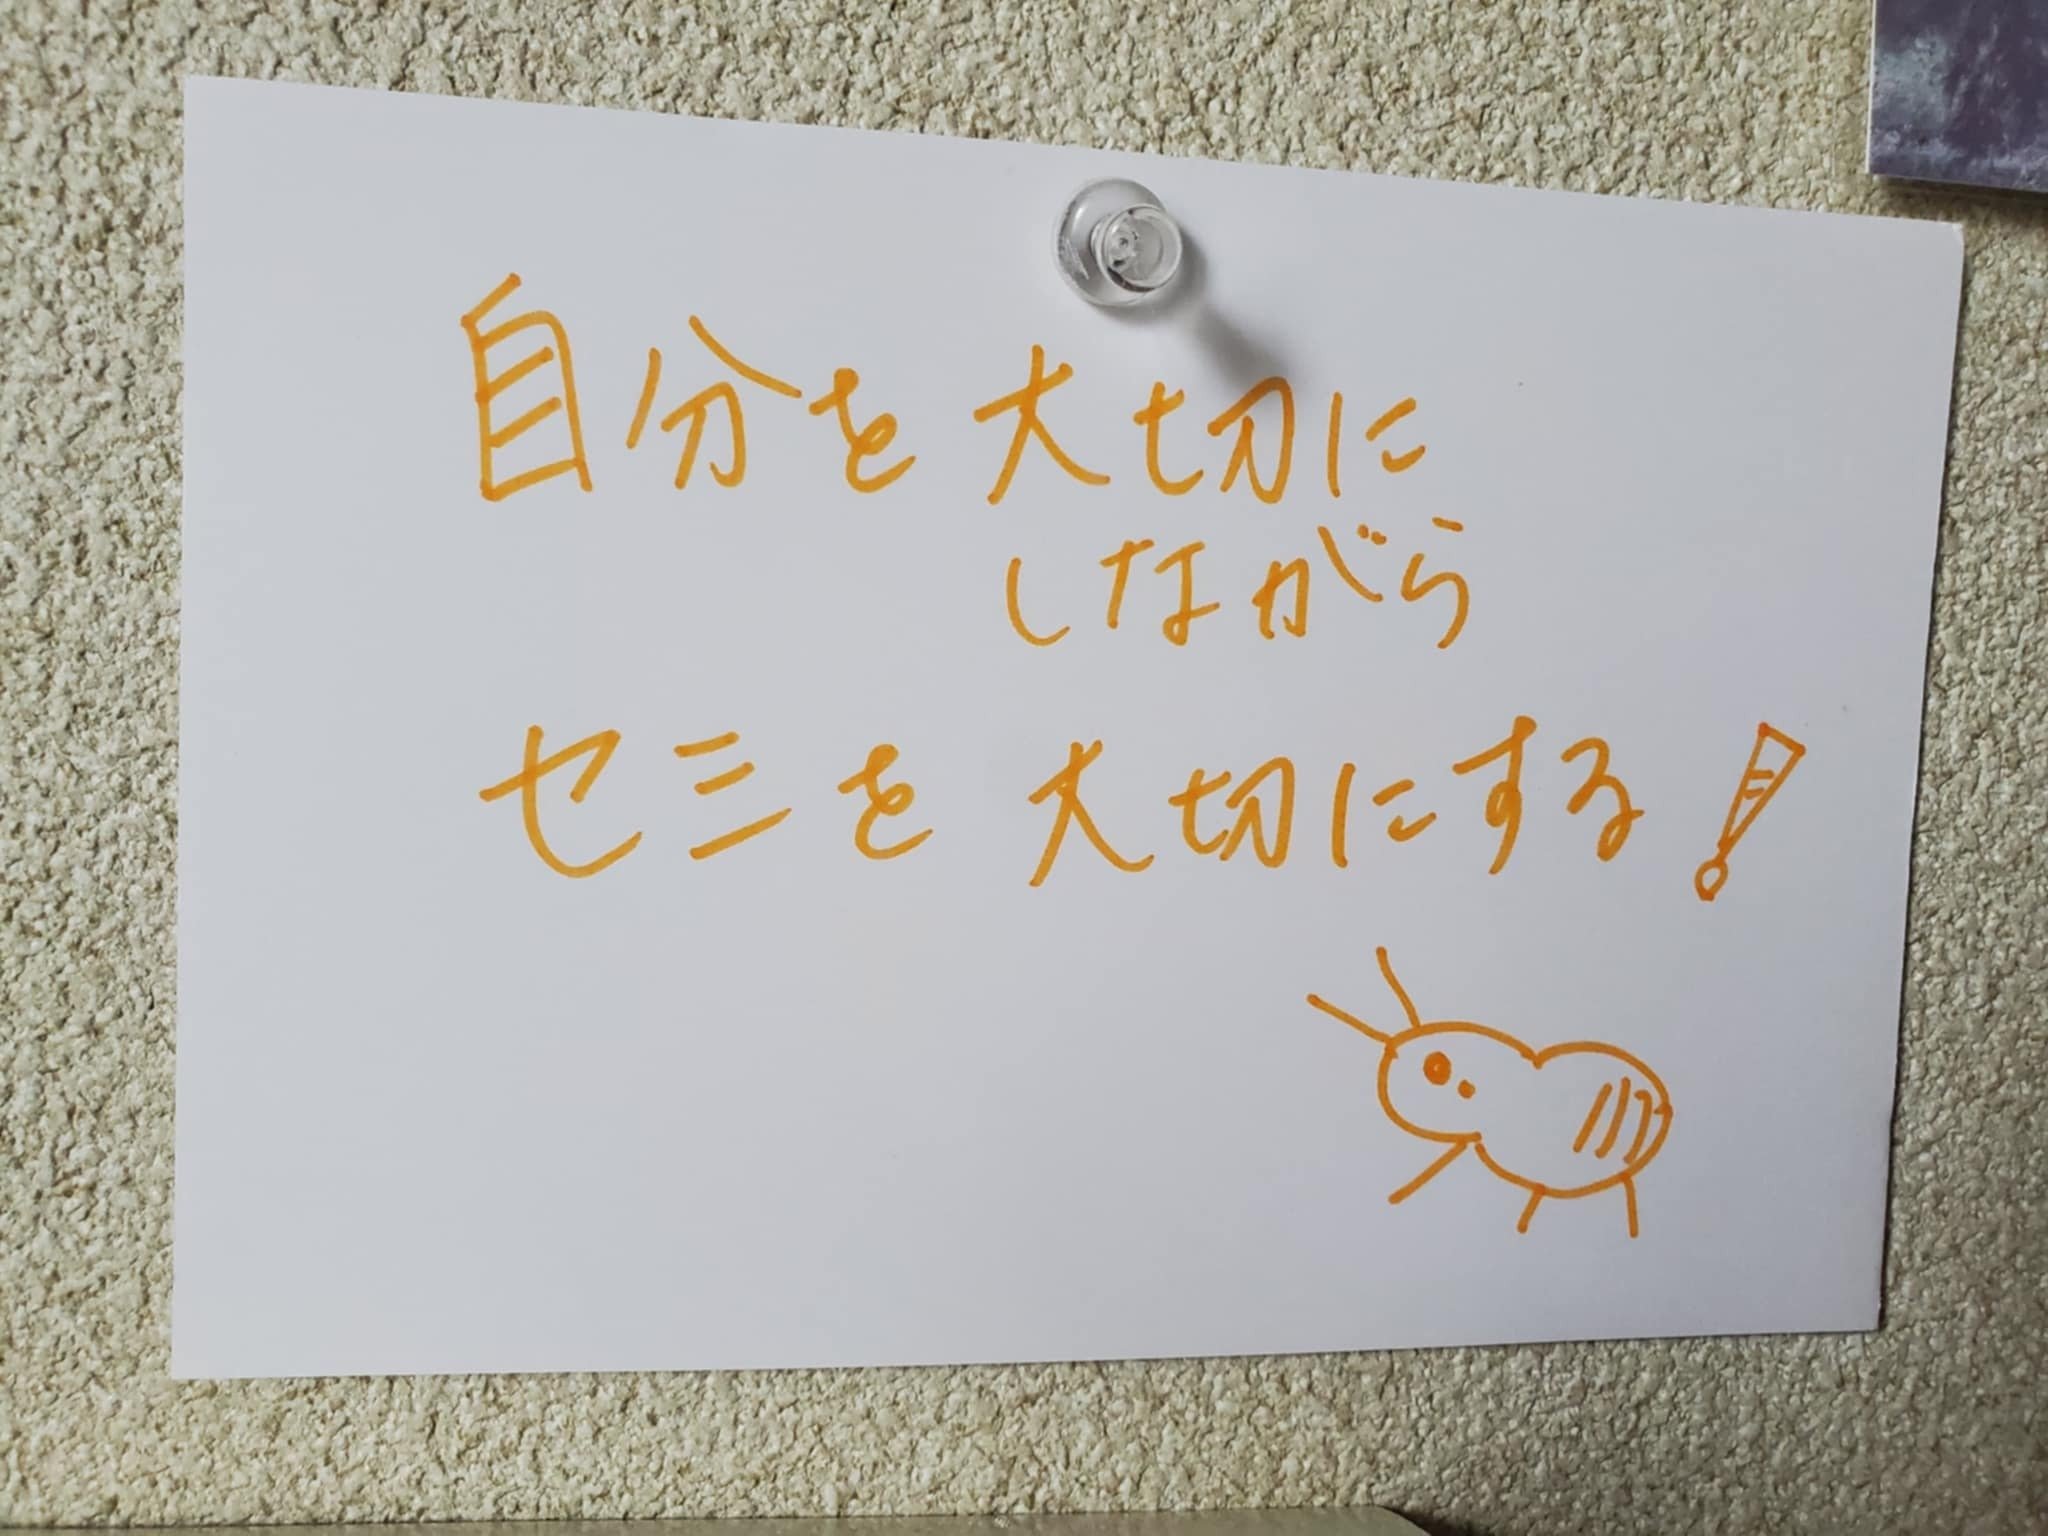 自分を大切に
しながら
セミを大切にする!